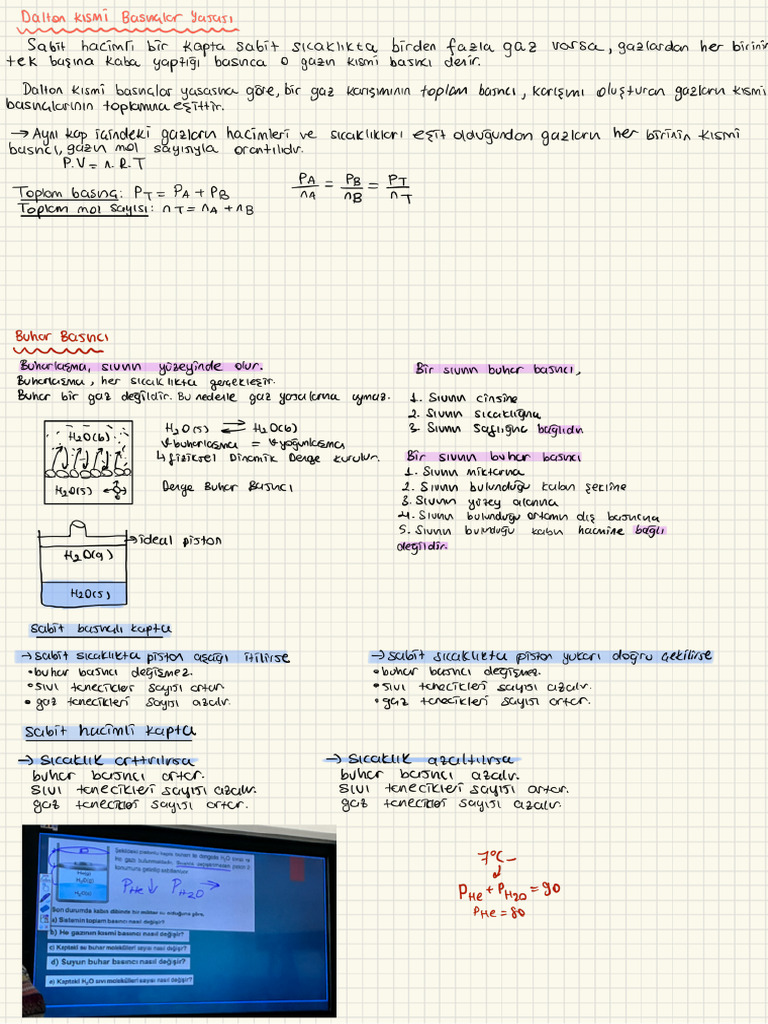 Dalton Kısmî Basınçlar Yasası
Sabit hacimli bir kapta sabit sıcaklıkta birden fazla gaz varsa, gazlardan her birinin
tek başına kaba yaptığı basınca o gazın kısmi basıncı denir.
Dalton kısmî basınçlar yasasına göre, bir gaz karışımının toplam basıncı, karışımı oluşturan gazların kısmi
basınçlarının toplamına eşittir.
→ Aynı kap içindeki gazların hacimleri ve sıcaklıkları eşit olduğundan gazların her birinin kısmi
basıncı, gazın mol sayısıyla orantılıdır.
P.V = n.R.T
Toplam basınç: PT = PA + PB
Toplam mol sayısı: nT = nA + nB
PA/nA = PB/nB = PT/nT
Buhar Basıncı
Buharlaşma, sıvının yüzeyinde olur.
Buharlaşma, her sıcaklıkta gerçekleşir.
Buhar bir gaz değildir. Bu nedenle gaz yasalarına uymaz.
H2O(b)
H2O(s)
H2O(s) ⇌ H2O(b)
Vbuharlaşma = Vyoğunlaşma
↳ fiziksel Dinamik Denge kurulur.
Denge Buhar Basıncı
→ ideal piston
H2O(g)
H2O(s)
Bir sıvının buhar basıncı,
1. Sıvının cinsine
2. Sıvının sıcaklığına
3. Sıvının saflığına bağlıdır
Bir sıvının buhar basıncı
1. Sıvının miktarına
2. Sıvının bulunduğu kabın şekline
3. Sıvının yüzey alanına
4. Sıvının bulunduğu ortamın dış basıncına
5. Sıvının bulunduğu kabın hacmine bağlı
değildir.
Sabit basınçlı kapta
→ Sabit sıcaklıkta piston aşağı itilirse
• buhar basıncı değişmez.
• sıvı tanecikler sayısı artar.
• gaz tanecikleri sayısı azalır.
→ Sabit sıcaklıkta piston yukarı doğru çekilirse
• buhar basıncı değişmez.
• sıvı tanecikleri sayısı azalır.
• gaz tanecikleri sayısı artar.
Sabit hacimli kapta
→ Sıcaklık arttırılırsa
buhar basıncı artar.
sıvı tanecikleri sayısı azalır.
gaz tanecikleri sayısı artar.
→ Sıcaklık azaltılırsa
buhar basıncı azalır.
sıvı tanecikleri sayısı artar.
gaz tanecikleri sayısı azalır.
He(g)
H2O(g)
H2O(s)
PHe ↓ PH2O →
Son durumda kabın dibinde bir miktar su olduğuna göre,
a) Sistemin toplam basıncı nasıl değişir?
b) He gazının kısmi basıncı nasıl değişir?
c) Kaptaki su buhar molekülleri sayısı nasıl değişir?
d) Suyun buhar basıncı nasıl değişir?
e) Kaptaki H2O sıvı molekülleri sayısı nasıl değişir?
7°C
PHe + PH2O = 90
PHe = 80